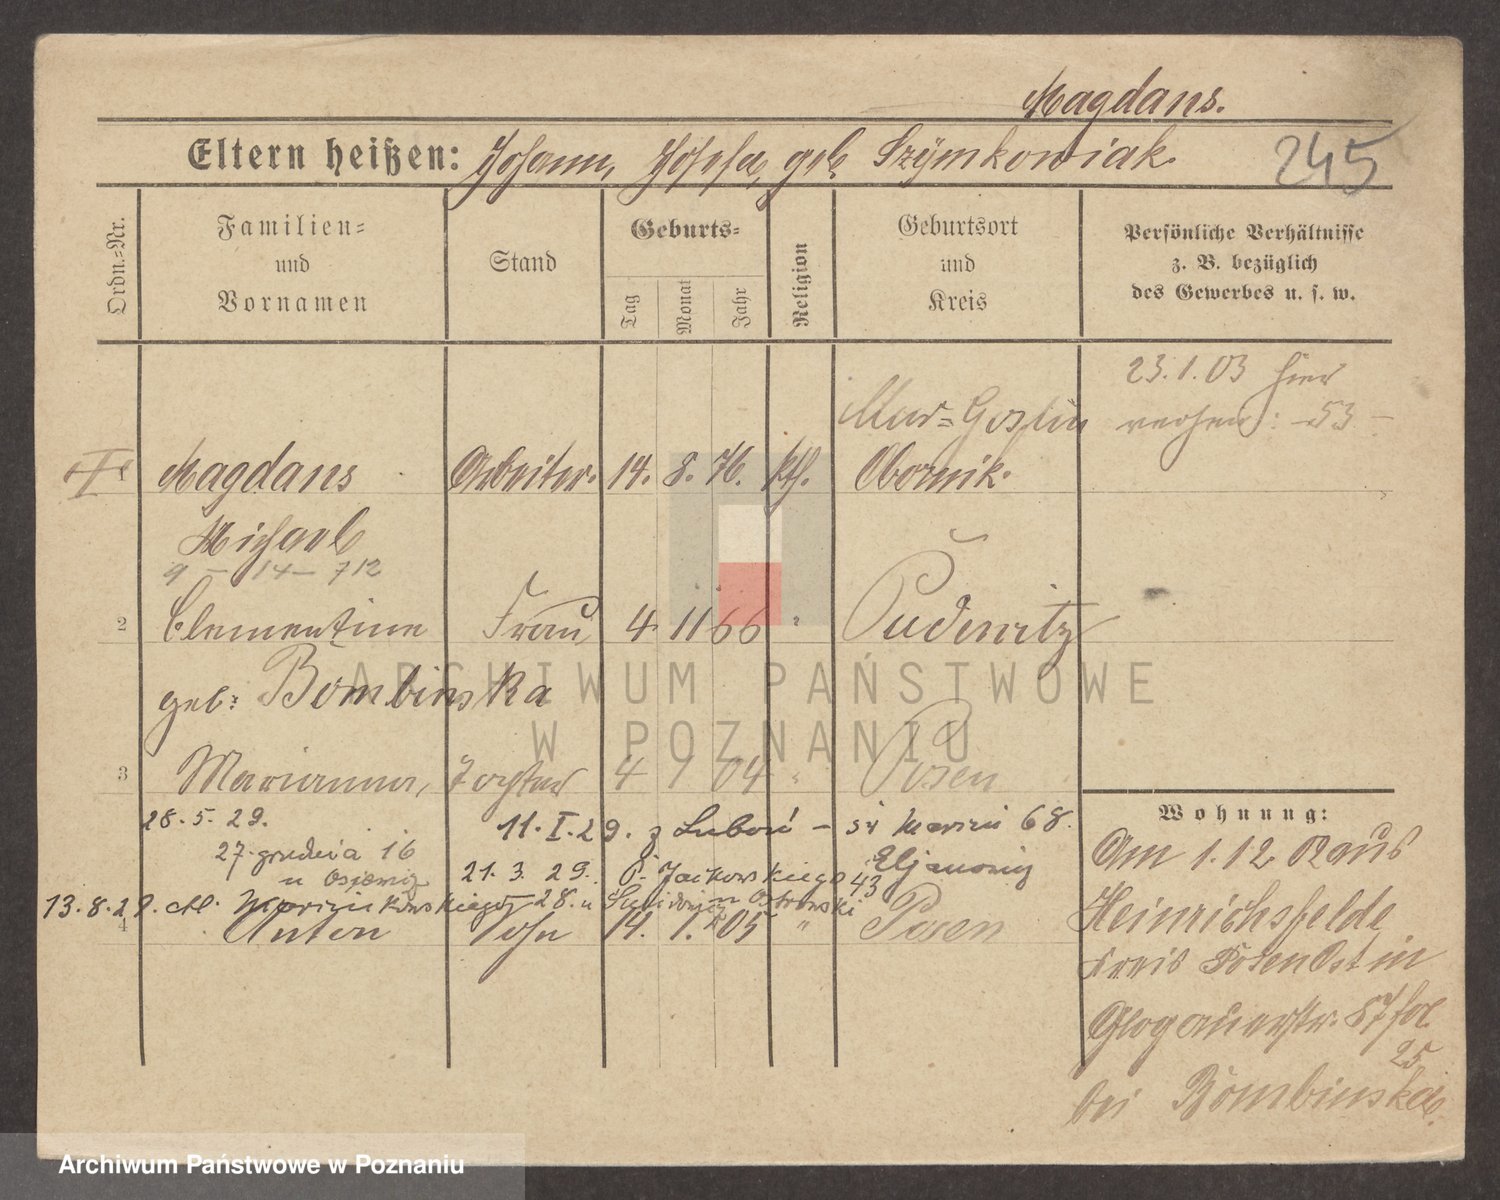 Magdans.
Eltern heißen: Johann, Josefa, geb. Szymkowiak.
245
Ordn.-Nr.
Familien- und Vornamen
Stand
Geburts-
Tag
Monat
Jahr
Religion
Geburtsort und Kreis
Persönliche Verhältnisse z. B. bezüglich des Gewerbes u. s. w.
23.1.03 hier
Mur=Goslin
53
Magdans Arbeiter. 14. 8. 76. kth. Obornik.
Michael
9 - 14 - 712
2 Clementine Frau 4. 11 66 " Pudewitz
geb: Bombinska
3 Marianna, Tochter 4 1 04 " Posen
28.5.29. 11.I.29. z Luboń - św Marcin 68.
27 grudnia 16 Eljanowicz
21.3.29. P. Jackowskiego 43
13.8.29. Marcinkowskiego 28. u Ostrowski
4 Anton Sohn 14. 1. 05 " Posen
Wohnung:
Am 1.12. Raus
Heinrichsfelde
Kreis Posen Ost in
Glogauerstr. 87
25
bei Bombinska.
ARCHIWUM PAŃSTWOWE
W POZNANIU
Archiwum Państwowe w Poznaniu